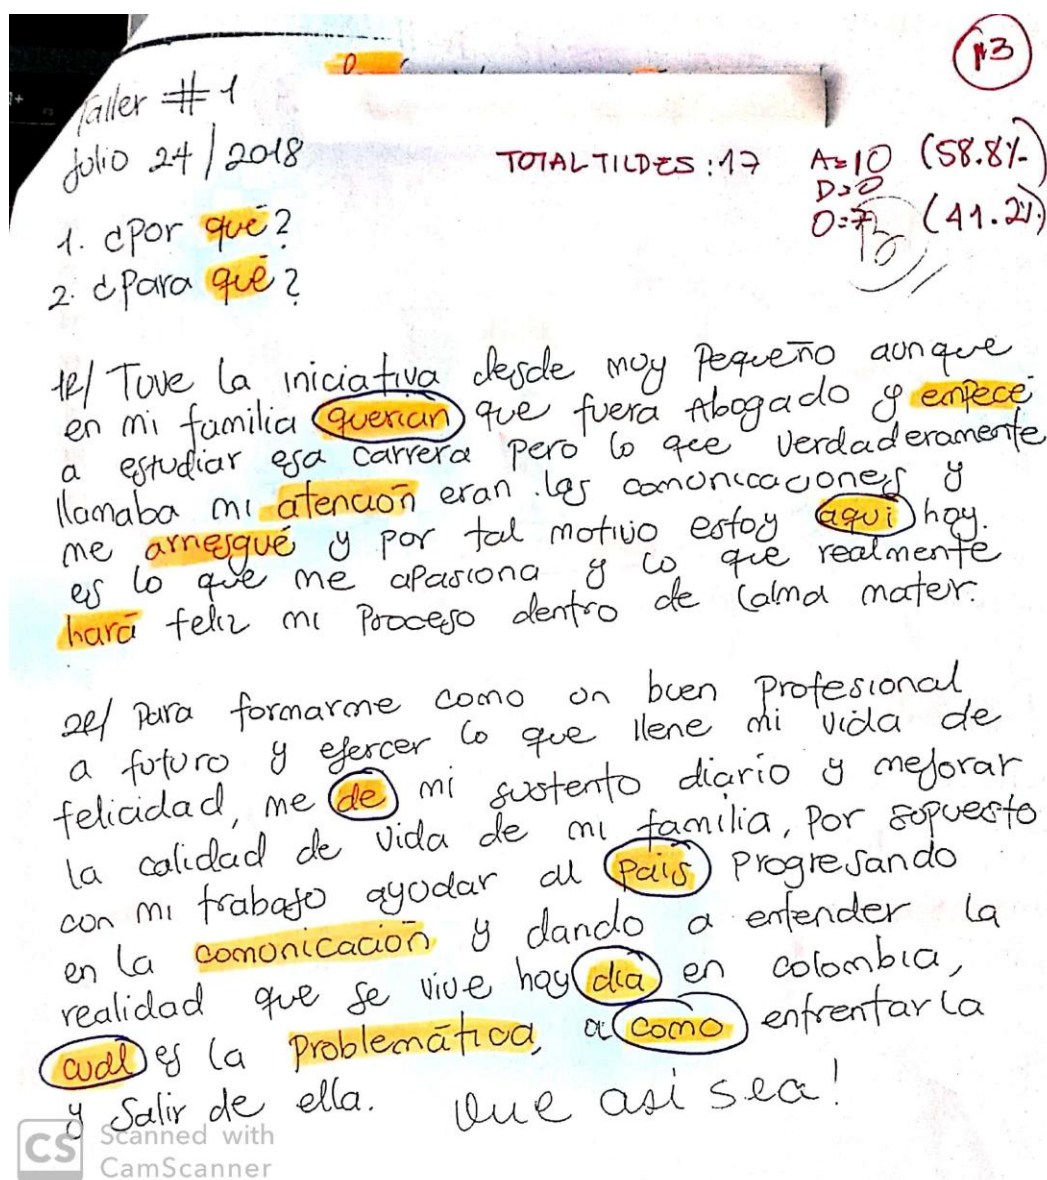 #3
Taller #1
Julio 24/2018
TOTAL TILDES: 17
A=10 (58.8%)
D=0
O=7 (41.2%)
1. ¿Por qué?
2. ¿Para qué?
1R/ Tuve la iniciativa desde muy Pequeño aunque
en mi familia querian que fuera Abogado y empecé
a estudiar esa carrera pero lo que verdaderamente
llamaba mi atención eran las comunicaciones y
me arriesgué y por tal motivo estoy aqui hoy.
es lo que me apasiona y lo que realmente
hará feliz mi Proceso dentro de (alma mater.
2R/ Para formarme como un buen Profesional
a futuro y ejercer lo que llene mi vida de
felicidad, me de mi sustento diario y mejorar
la calidad de vida de mi familia, Por supuesto
con mi trabajo ayudar al Pais Progresando
en la comunicación y dando a entender la
realidad que se vive hoy dia en colombia,
cual es la Problemática, a como enfrentar la
y Salir de ella. Que asi sea!
CS Scanned with
CamScanner